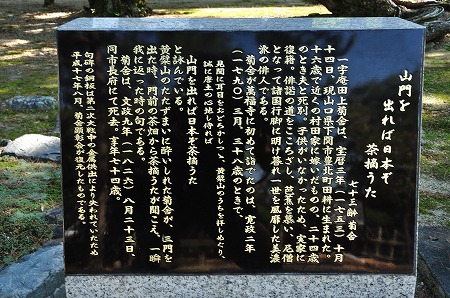 山門を
出れば日本ぞ
茶摘うた
七十三齢菊舎
一字庵田上菊舎は、宝暦三年(一七五三)十月
十四日、現山口県下関市豊北町田耕に生まれた。
十六歳で近くの村田家に嫁いだものの、二十四歳
のとき夫と死別。子供がいなかったため、実家に
復籍。俳諧の道をこころざし、芭蕉を慕い、尼僧
となって諸国行脚に明け暮れ一世を風靡した美濃
派の俳人である。
菊舎が萬福寺に初めて詣でたのは、寛政二年
(一七九〇)三月、三十八歳のときで、
見聞に耳目をおどろかしつゝ、黄檗山のうちを拝しめぐり、
誠に唐土の心地し侍れば
山門を出れば日本ぞ茶摘うた
と詠んでいる。
黄檗山のたたずまいに酔いしれた菊舎が、三門を
出た時、門前の茶畑から茶摘うたが聞こえ、一瞬
我に返った時の句である。
菊舎は、文政九年(一八二六)八月二十三日、
同市長府にて死去。享年七十四歳。
句碑の銅板は第二次大戦中の金属供出により失われていたため
平成十七年八月、菊舎顕彰会が復元したものである。